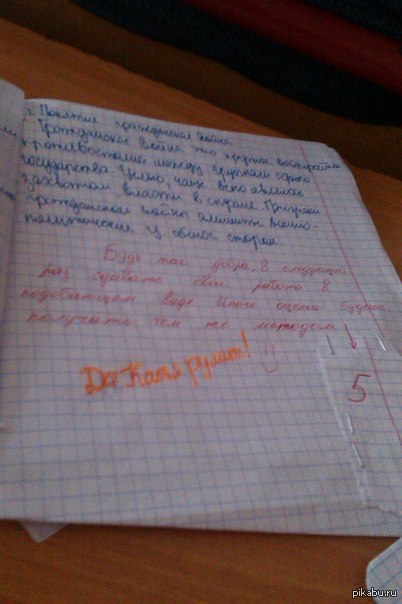 1. Понятие гражданская война.
Гражданская война это крупное вооружённое
противостояние между группами одного
государства. Целью, чаще всего является
захватом власти в стране. Признаки
гражданской войны военно-
политические у обоих сторон.
Будь так добра, в следующий
раз сдавать свои работы в
подобающем виде Иначе оценки будешь
получать тем же методом
Да Катя рулит!
5
pikabu.ru